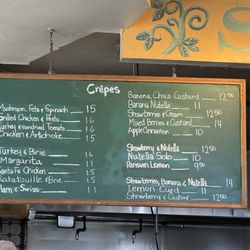 Crêpes
Mushroom, Feta & Spinach 15
Grilled Chicken & Pesto 16
Turkey & Sundried Tomato 16
Chicken & Artichoke 15
Turkey & Brie 16
Margarita 11
Santa Fe Chicken 15
Ratatouille & Brie 15
Ham & Swiss 11
Banana Choco Custard 12.50
Banana Nutella 11
Strawberries & Cream 12.50
Mixed Berries & Custard 14
Apple Cinnamon 10
Strawberry & Nutella 12.50
Nutella Solo 10
Parisian Lemon 9.50
Strawberries, Banana & Nutella 14
Lemon Curd 12.50
Strawberry & Custard 12.50
S